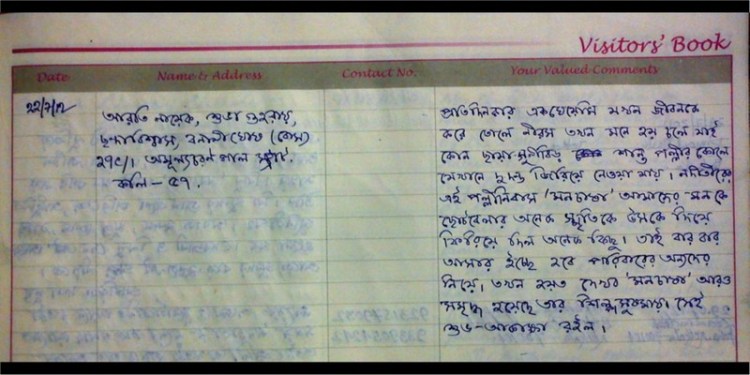 Visitors' Book
Date Name & Address Contact No. Your Valued Comments
আরতি নায়েক, শুভা গুহরায়,
২৭৫/১ অমূল্যচরণ পাল স্ট্রীট.
কলি - ৫৭.
প্রতিদিনকার একঘেয়েমি যখন জীবনকে
করে তোলে নীরস তখন মনে হয় চলে যাই
কোন ছায়া-সুনিবিড় শান্ত পল্লীর কোলে
যেখানে দুদন্ড জিরিয়ে নেওয়া যায়। নদীতীরের
এই পল্লীনিবাস 'মনচাষা' আমাদের মনকে
ছোটবেলার অনেক স্মৃতিকে উসকে দিয়ে
ফিরিয়ে দিল অনেক কিছু। তাই বার বার
আসার ইচ্ছে হবে পরিবারের অন্যদের
নিয়ে। তখন হয়ত দেখব 'মনচাষা' আরও
সমৃদ্ধ হয়েছে তার শিল্প সুষমায়। সেই
শুভ-আকাঙ্ক্ষা রইল।